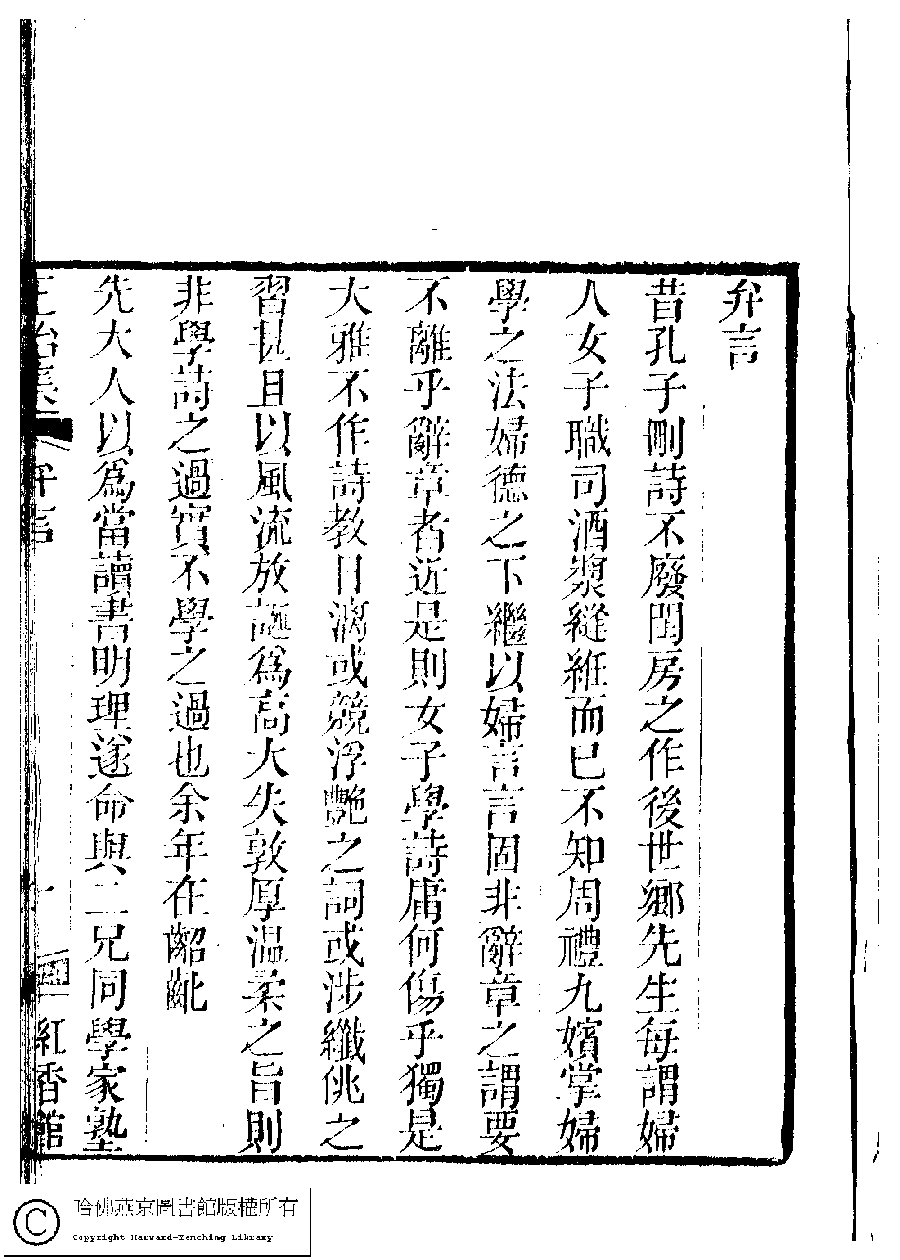 弁言
昔孔子刪詩不廢閨房之作後世鄉先生每謂婦
人女子職司酒漿縫紝而已不知周禮九嬪掌婦
學之法婦德之下繼以婦言言固非辭章之謂要
不離乎辭章者近是則女子學詩庸何傷乎獨是
大雅不作詩教日漓或競浮艷之詞或涉纖佻之
習甚且以風流放誕為高大失敦厚溫柔之旨則
非學詩之過實不學之過也余年在齠齔
先大人以為當讀書明理遂命與二兄同學家塾
正始集 弁言 一 紅香館
哈佛燕京圖書館版權所有
Copyright Harvard-Yenching Library